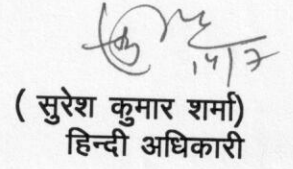 14/7
( सुरेश कुमार शर्मा)
हिन्दी अधिकारी